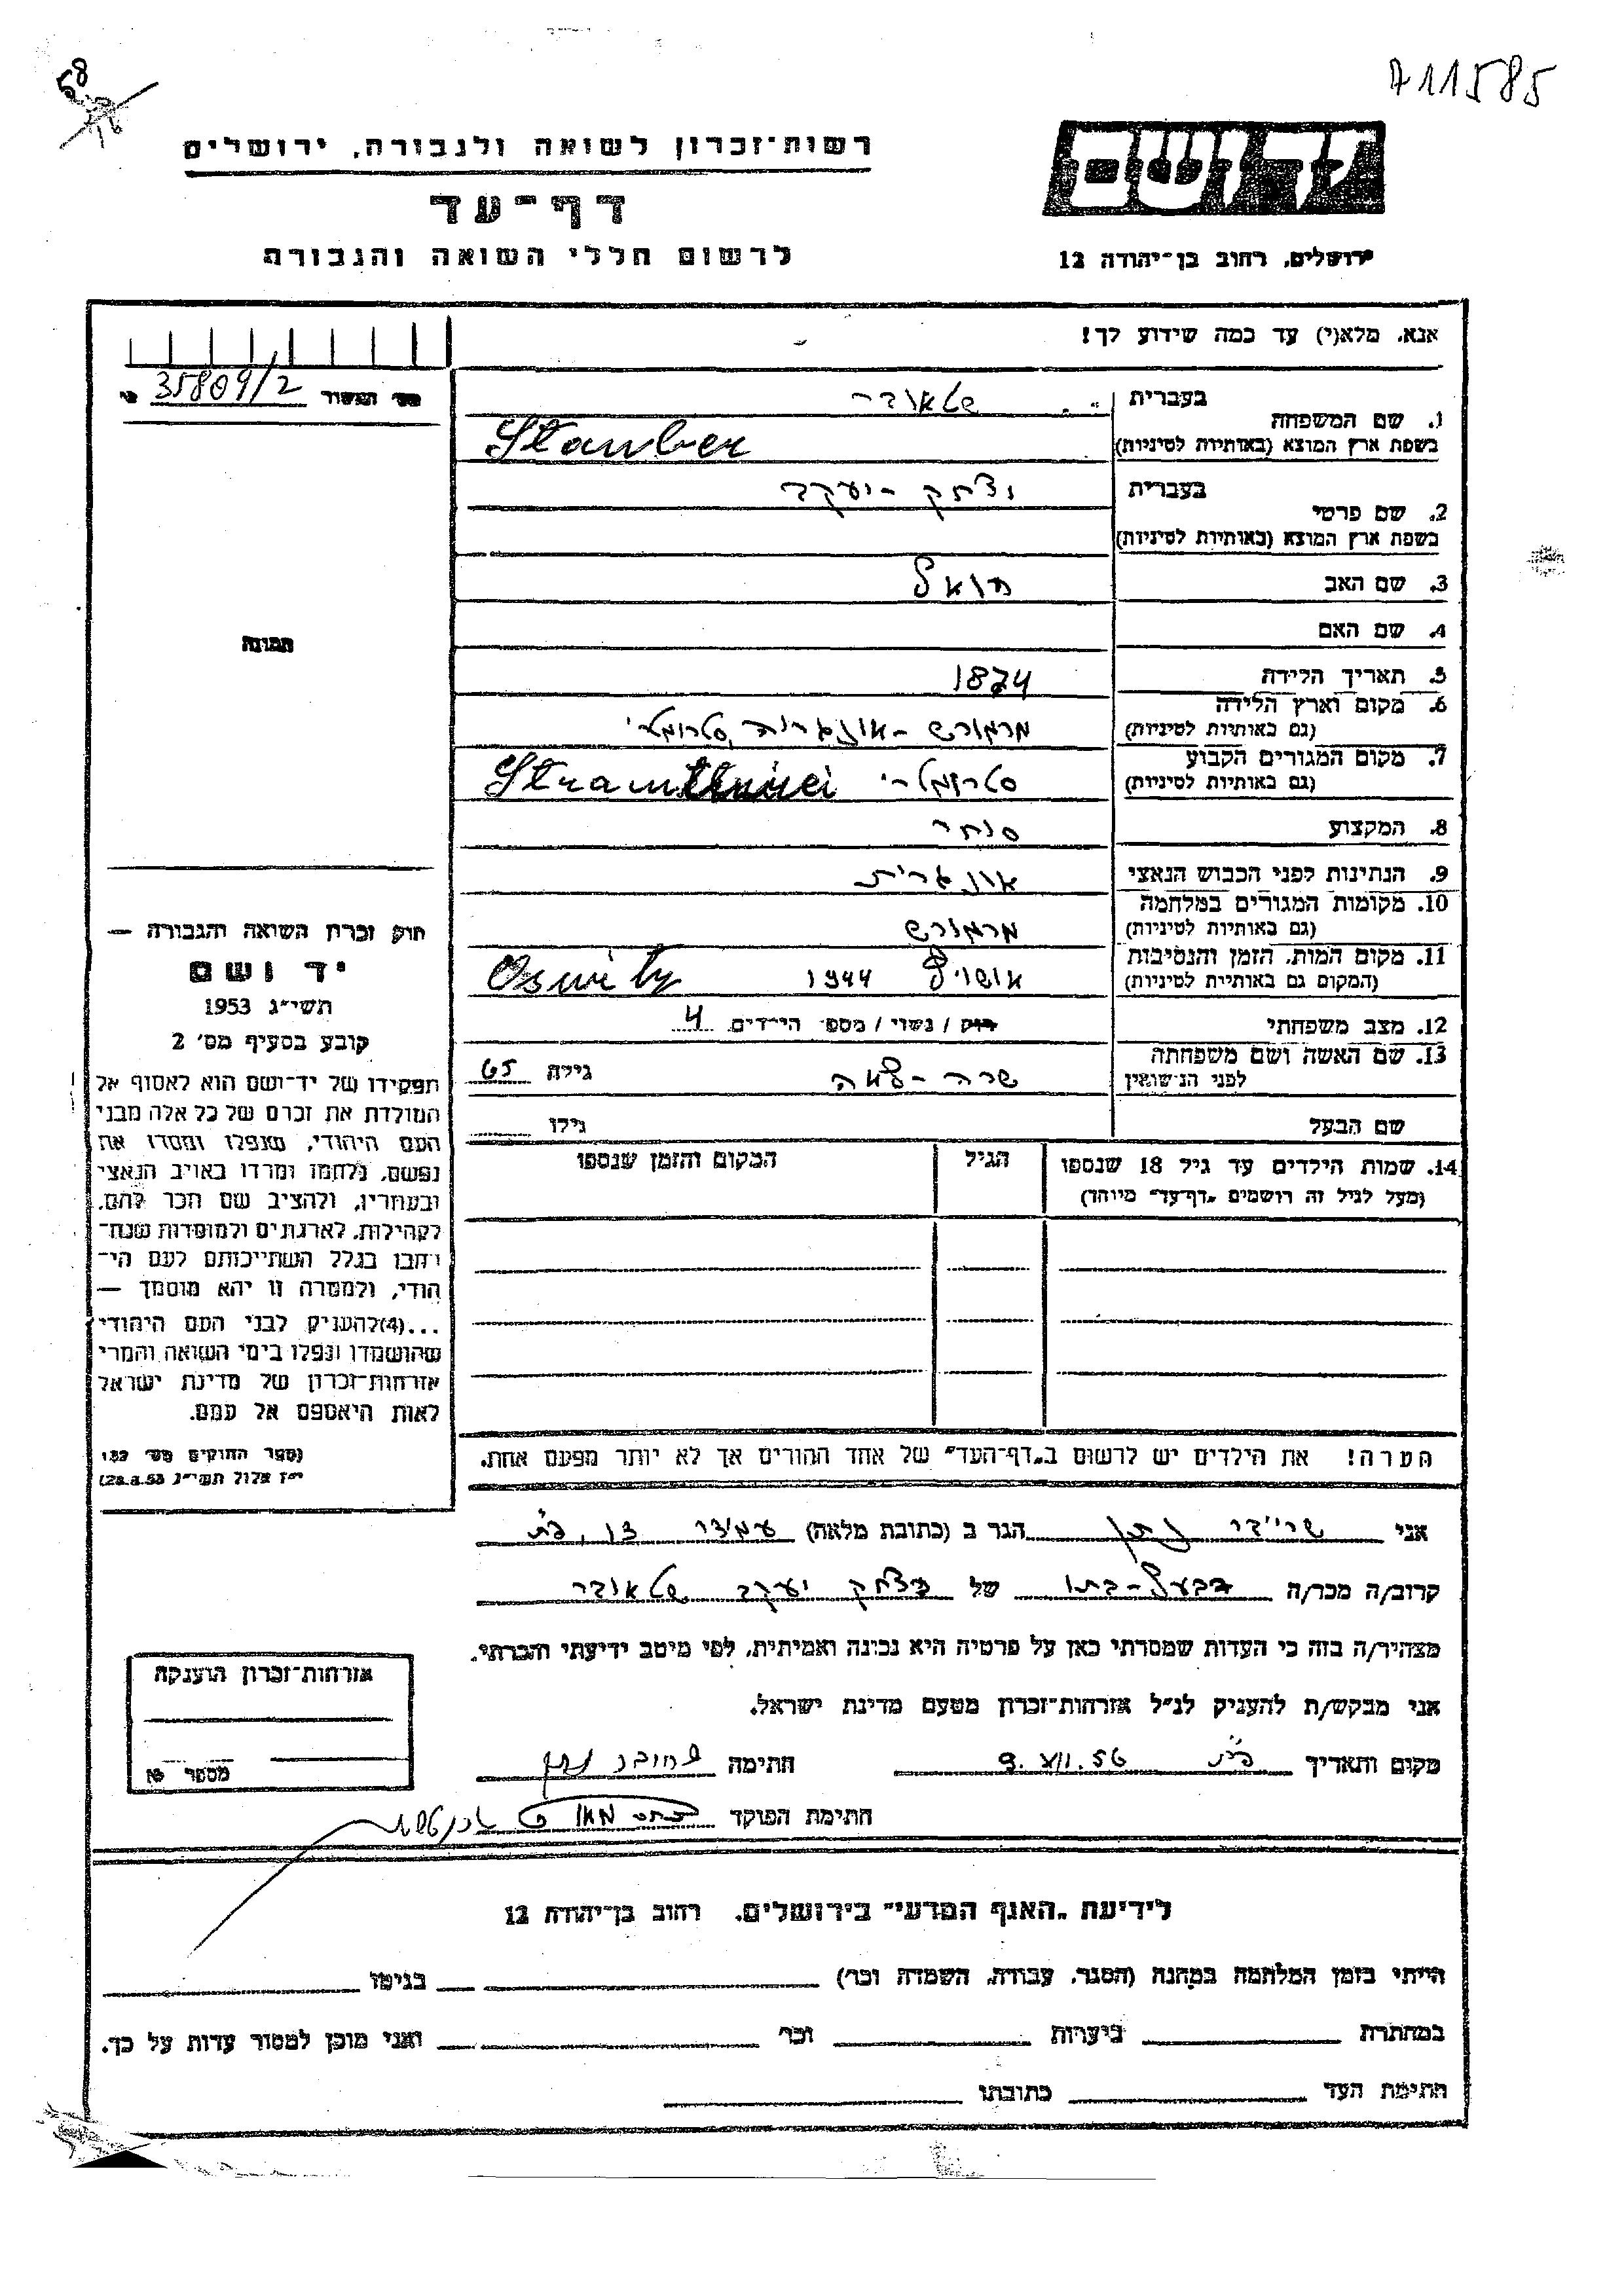 711585
58
יד ושם
ירושלים, רחוב בן־יהודה 12
רשות־זכרון לשואה ולגבורה, ירושלים
דף־עד
לרשום חללי השואה והגבורה
אנא, מלא(י) עד כמה שידוע לך!
35809/2
תמונה
חוק זכרון השואה והגבורה —
יד ושם
תשי״ג 1953
קובע בסעיף מס׳ 2
תפקידו של יד־ושם הוא לאסוף אל
המולדת את זכרם של כל אלה מבני
העם היהודי, שנפלו ומסרו את
נפשם, נלחמו ומרדו באויב הנאצי
ובעוזריו, ולהציב שם וזכר להם,
לקהילות, לארגונים ולמוסדות שנח־
רבו בגלל השתייכותם לעם הי־
הודי, ולמטרה זו יהא מוסמך —
...(4)להעניק לבני העם היהודי
שהושמדו ונפלו בימי השואה והמרי
אזרחות־זכרון של מדינת ישראל
לאות היאספם אל עמם.
(ספר החוקים מס׳ 132
י״ז אלול תשי״ג 28.8.53)
בעברית שטאובר
1. שם המשפחה
בשפת ארץ המוצא (באותיות לטיניות) Stauber
בעברית יצחק - יעקב
2. שם פרטי
בשפת ארץ המוצא (באותיות לטיניות)
3. שם האב יואל
4. שם האם
5. תאריך הלידה 1874
6. מקום וארץ הלידה
(גם באותיות לטיניות) מרמורש - אונגריה
7. מקום המגורים הקבוע
(גם באותיות לטיניות)
8. המקצוע סוחר
9. הנתינות לפני הכבוש הנאצי אונגרית
10. מקומות המגורים במלחמה
(גם באותיות לטיניות) מרמורש
11. מקום המות, הזמן והנסיבות
(המקום גם באותיות לטיניות) אושויץ 1944 Oswitz
12. מצב משפחתי רווק / נשוי / מספר הילדים 4
13. שם האשה ושם משפחתה
לפני הנישואין שרה - גילה 65
שם הבעל גילו
14. שמות הילדים עד גיל 18 שנספו הגיל המקום והזמן שנספו
(מעל לגיל זה רושמים „דף־עד״ מיוחד)
הערה! את הילדים יש לרשום ב„דף־העד״ של אחד ההורים אך לא יותר מפעם אחת.
אני נתן הגר ב (כתובת מלאה)
קרוב/ה מכר/ה בעל-בתו של יצחק יעקב שטאובר
מצהיר/ה בזה כי העדות שמסרתי כאן על פרטיה היא נכונה ואמיתית, לפי מיטב ידיעתי והכרתי.
אני מבקש/ת להעניק לנ״ל אזרחות־זכרון מטעם מדינת ישראל.
מקום ותאריך 9.XII.56 חתימה
חתימת הפוקד
אזרחות־זכרון הוענקה
מספר
לידיעת „האגף המדעי״ בירושלים, רחוב בן־יהודה 12
הייתי בזמן המלחמה במחנה (הסגר, עבודה, השמדה וכו׳) בגיטו
במחתרת ביערות וכו׳ ואני מוכן למסור עדות על כך.
חתימת העד כתובתו